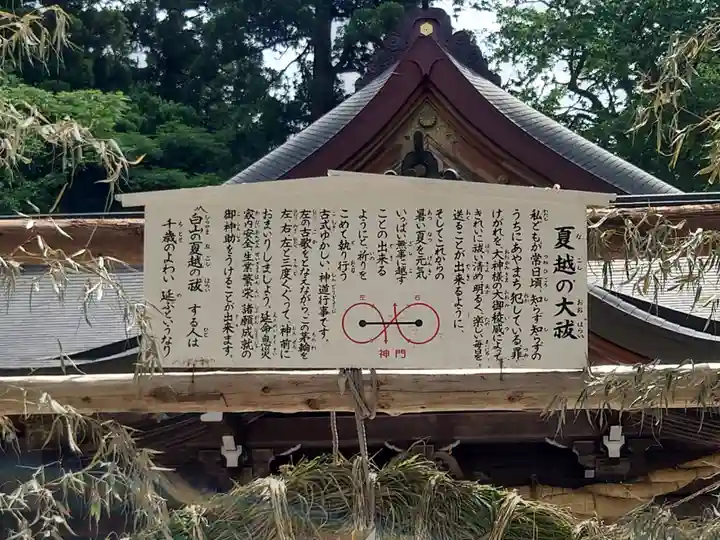 夏越の大祓
私ども が常日頃、知らず知らずの
うちにあやまち犯している。罪
けがれを、大神様の大御稜威によって
きれいに祓い清め明るく、楽しい毎日を
送ることが出来るように、
そしてこれからの
暑い夏を元気
いっぱい無事に越す
ことの出来る
ようにと、祈りを
こめて執り行う
古式ゆかしい、神道行事です。
左の古歌をとなえながら、この茅輪を
左、右、左と三度くぐって、神前に
おまいりしましょう。延命息災
家内安全、生業繁栄、諸願成就の
御神助をうけることが出来ます。
白山の夏越の祓 する人は
千歳のよわい 延ぶというなり
左
右
神門